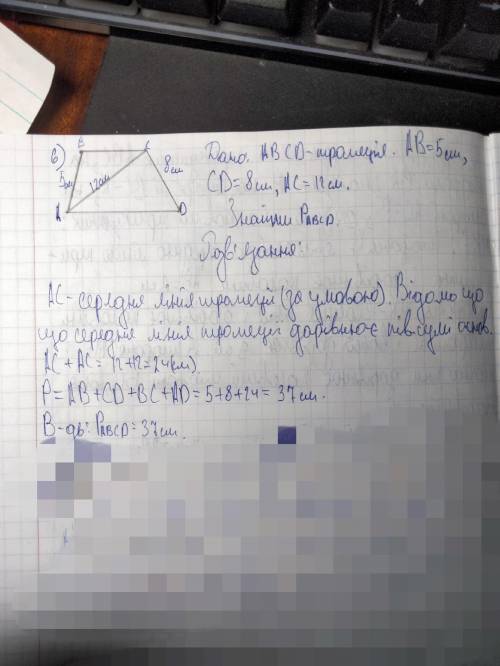 6) B C
5см 12см 8см
A D
Дано. ABCD-трапеція. AB=5см,
CD=8см, AC=12см.
Знайти PABCD.
Розв'язання:
AC-середня лінія трапеції (за умовою). Відомо що
що середня лінія трапеції дорівнює півсумі основ.
AC+AC=12+12=24(см)
P=AB+CD+BC+AD=5+8+24=37см.
В-дь: PABCD=37см.